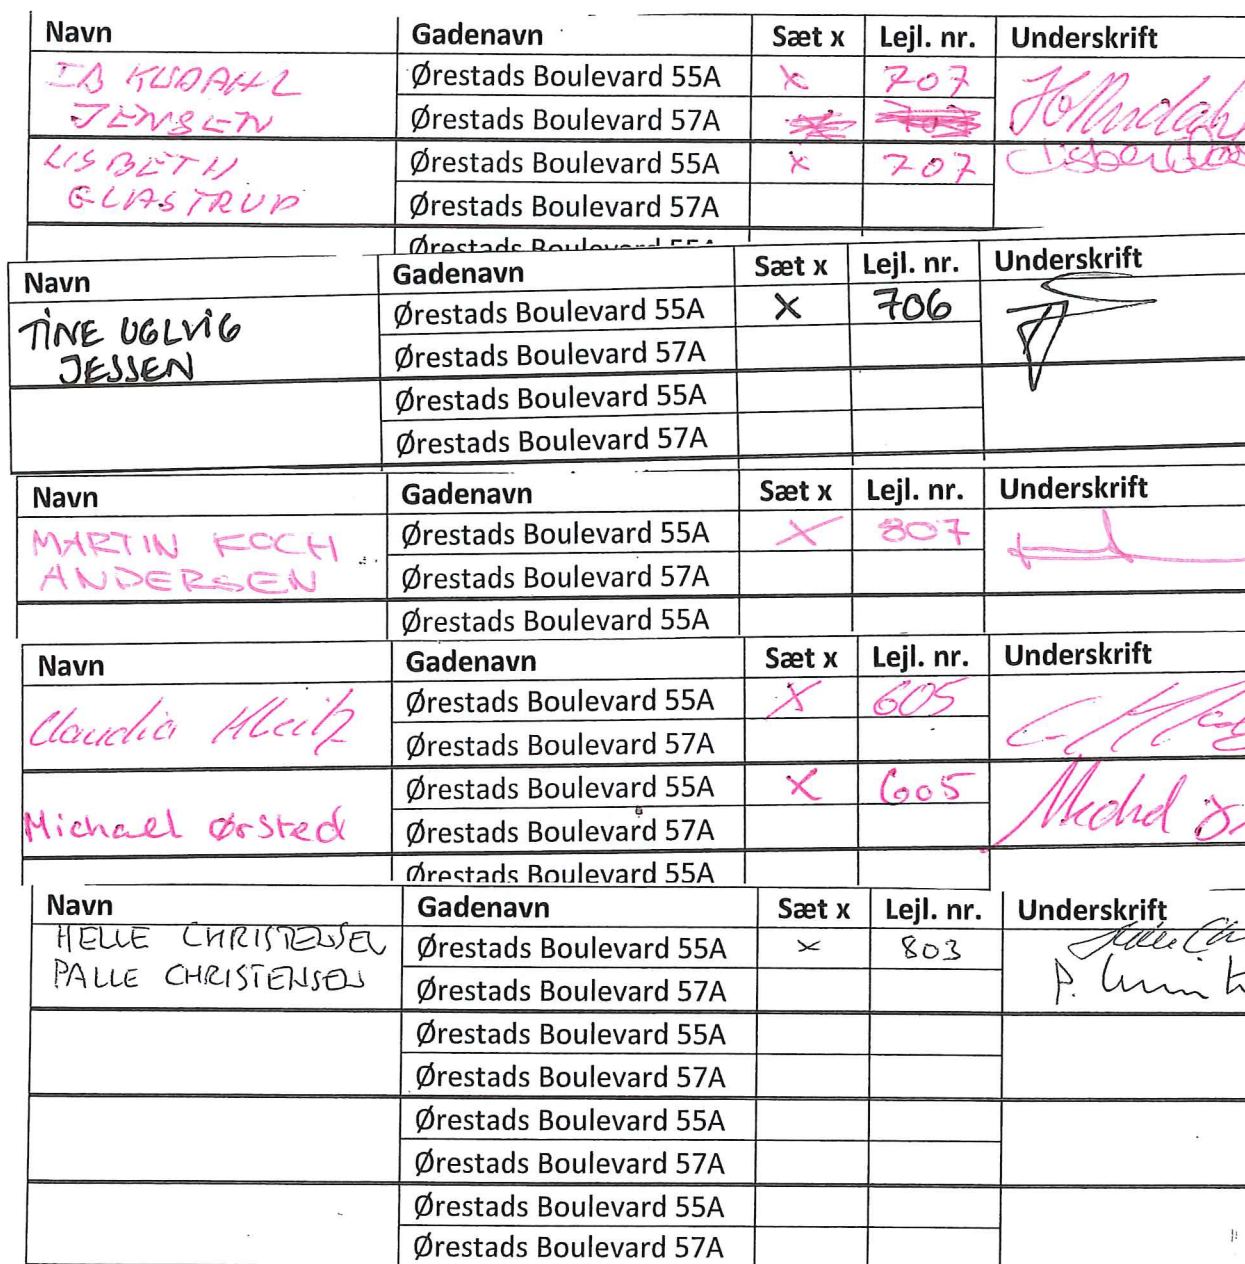 Navn Gadenavn Sæt x Lejl. nr. Underskrift
IB KUDAHL Ørestads Boulevard 55A x 707
JENSEN Ørestads Boulevard 57A
LISBETH Ørestads Boulevard 55A x 707
GLASTRUP Ørestads Boulevard 57A
Ørestads Boulevard 55A
Navn Gadenavn Sæt x Lejl. nr. Underskrift
TINE UGLVIG Ørestads Boulevard 55A X 706
JESSEN Ørestads Boulevard 57A
Ørestads Boulevard 55A
Ørestads Boulevard 57A
Navn Gadenavn Sæt x Lejl. nr. Underskrift
MARTIN KOCH Ørestads Boulevard 55A X 807
ANDERSEN Ørestads Boulevard 57A
Ørestads Boulevard 55A
Navn Gadenavn Sæt x Lejl. nr. Underskrift
Claudia Ørestads Boulevard 55A X 605
Ørestads Boulevard 57A
Ørestads Boulevard 55A X 605
Michael Ørsted Ørestads Boulevard 57A
Ørestads Boulevard 55A
Navn Gadenavn Sæt x Lejl. nr. Underskrift
HELLE CHRISTENSEN Ørestads Boulevard 55A x 803
PALLE CHRISTENSEN Ørestads Boulevard 57A
Ørestads Boulevard 55A
Ørestads Boulevard 57A
Ørestads Boulevard 55A
Ørestads Boulevard 57A
Ørestads Boulevard 55A
Ørestads Boulevard 57A